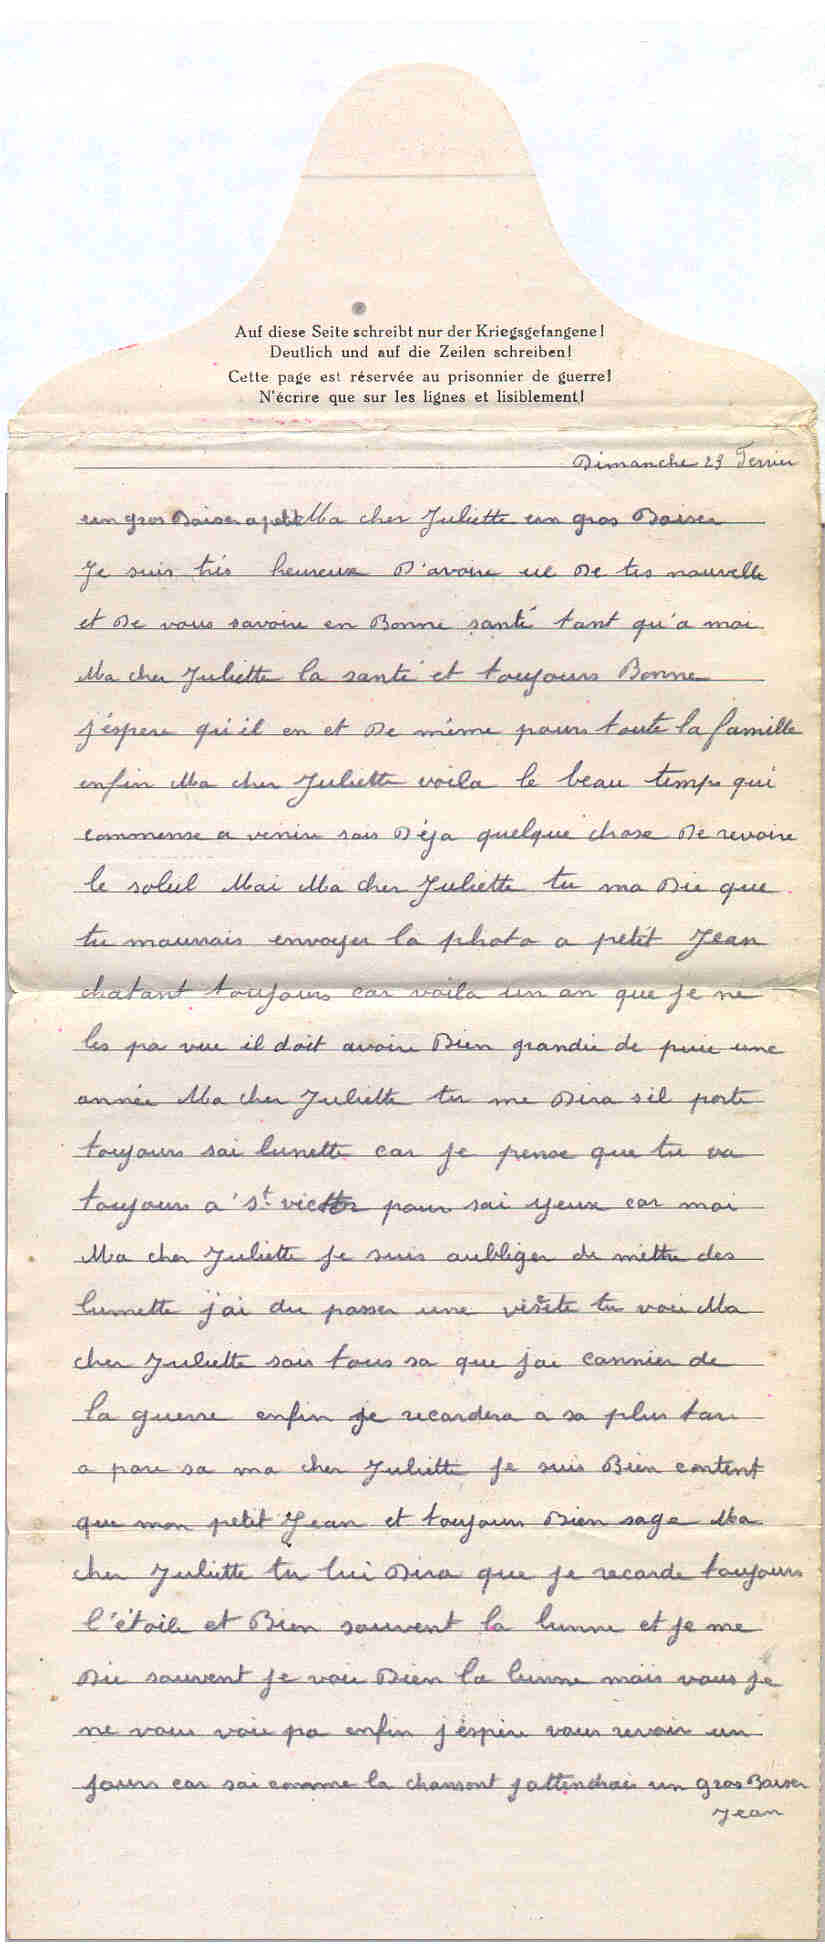 Auf diese Seite schreibt nur der Kriegsgefangene!
Deutlich und auf die Zeilen schreiben!
Cette page est réservée au prisonnier de guerre!
N'écrire que sur les lignes et lisiblement!
Dimanche 23 Fevrier
un gros Baiser a petit Ma cher Juliette un gros Baiser
Je suis très heureux D'avoire ue De tes nouvelle
et De vous savoire en Bonne santé tant qu'a moi
Ma cher Juliette la santé et toujours Bonne
j'éspere qu'il en et De même pours toute la famille
enfin Ma cher Juliette voila le beau temps qui
commense a venire sais Déja quelque chose De revoire
le soleil Mai Ma cher Juliette tu ma Die que
tu maurais envoyer la photo a petit Jean
chatant toujours car voila un an que je ne
les pa vue il doit avoire Bien grandie de puie une
année Ma cher Juliette tu me Dira s'il porte
toujours sai lunette car je pense que tu va
toujours a St victor pour sai yeux car moi
Ma cher Juliette je suis aubliger de mettre des
lunette j'ai du passer une visite tu voie Ma
cher Juliette sais tous sa que j'ai de
la guerre enfin je recardera a sa plus tar
a pare sa ma cher Juliette je suis Bien content
que mon petit Jean et toujours Bien sage Ma
cher Juliette tu lui Dira que je recarde toujours
l'étoile et Bien souvent la lunne et je me
Die souvent je voie Bien la lunne mais vous je
ne vous voie pa enfin j'éspère vous revoir un
jours car sai comme la chansont j'attendrais un gros Baiser
Jean